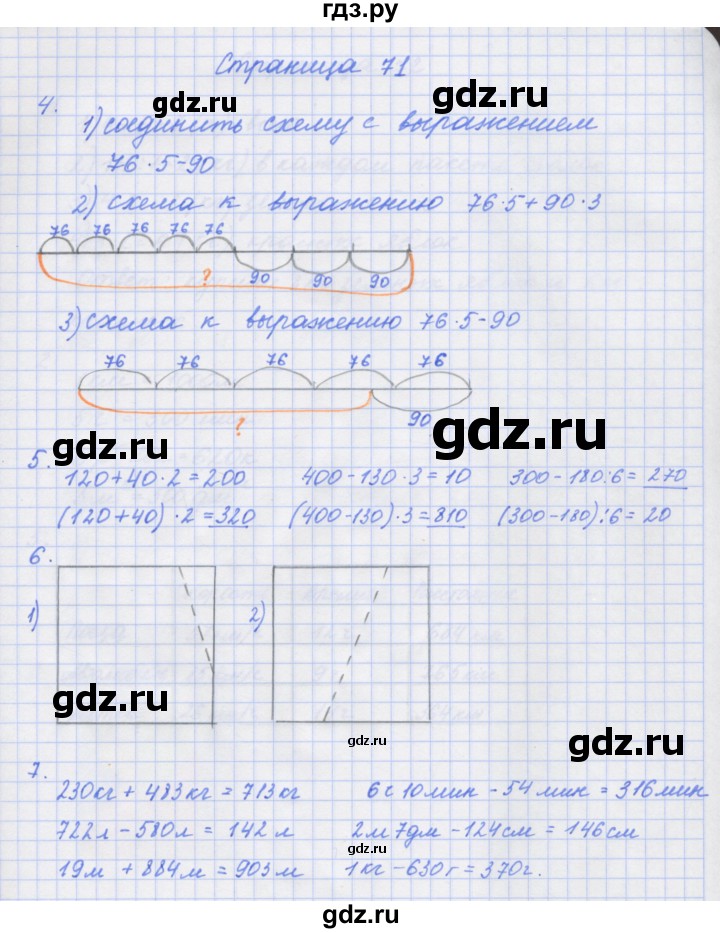 гдз.ру
Страница 71
4.
gdz.ru
gdz.ru
1) соединить схему с выражением
76·5-90
2) схема к выражению 76·5+90·3
76 76 76 76 76
?
90 90 90
3) схема к выражению 76·5-90
76 76 76 76 76
?
90
gdz.ru
gdz.ru
5.
120+40·2=200 400-130·3=10 300-180:6=270
(120+40)·2=320 (400-130)·3=810 (300-180):6=20
6.
1) 2)
gdz.ru
gdz.ru
gdz.ru
7.
230кг + 483кг = 713кг 6ч 10мин - 54мин = 316мин
722л - 580л = 142л 2м 7дм - 124см = 146см
gdz.ru
19м + 884м = 903м 1кг - 630г = 370г.
gdz.ru